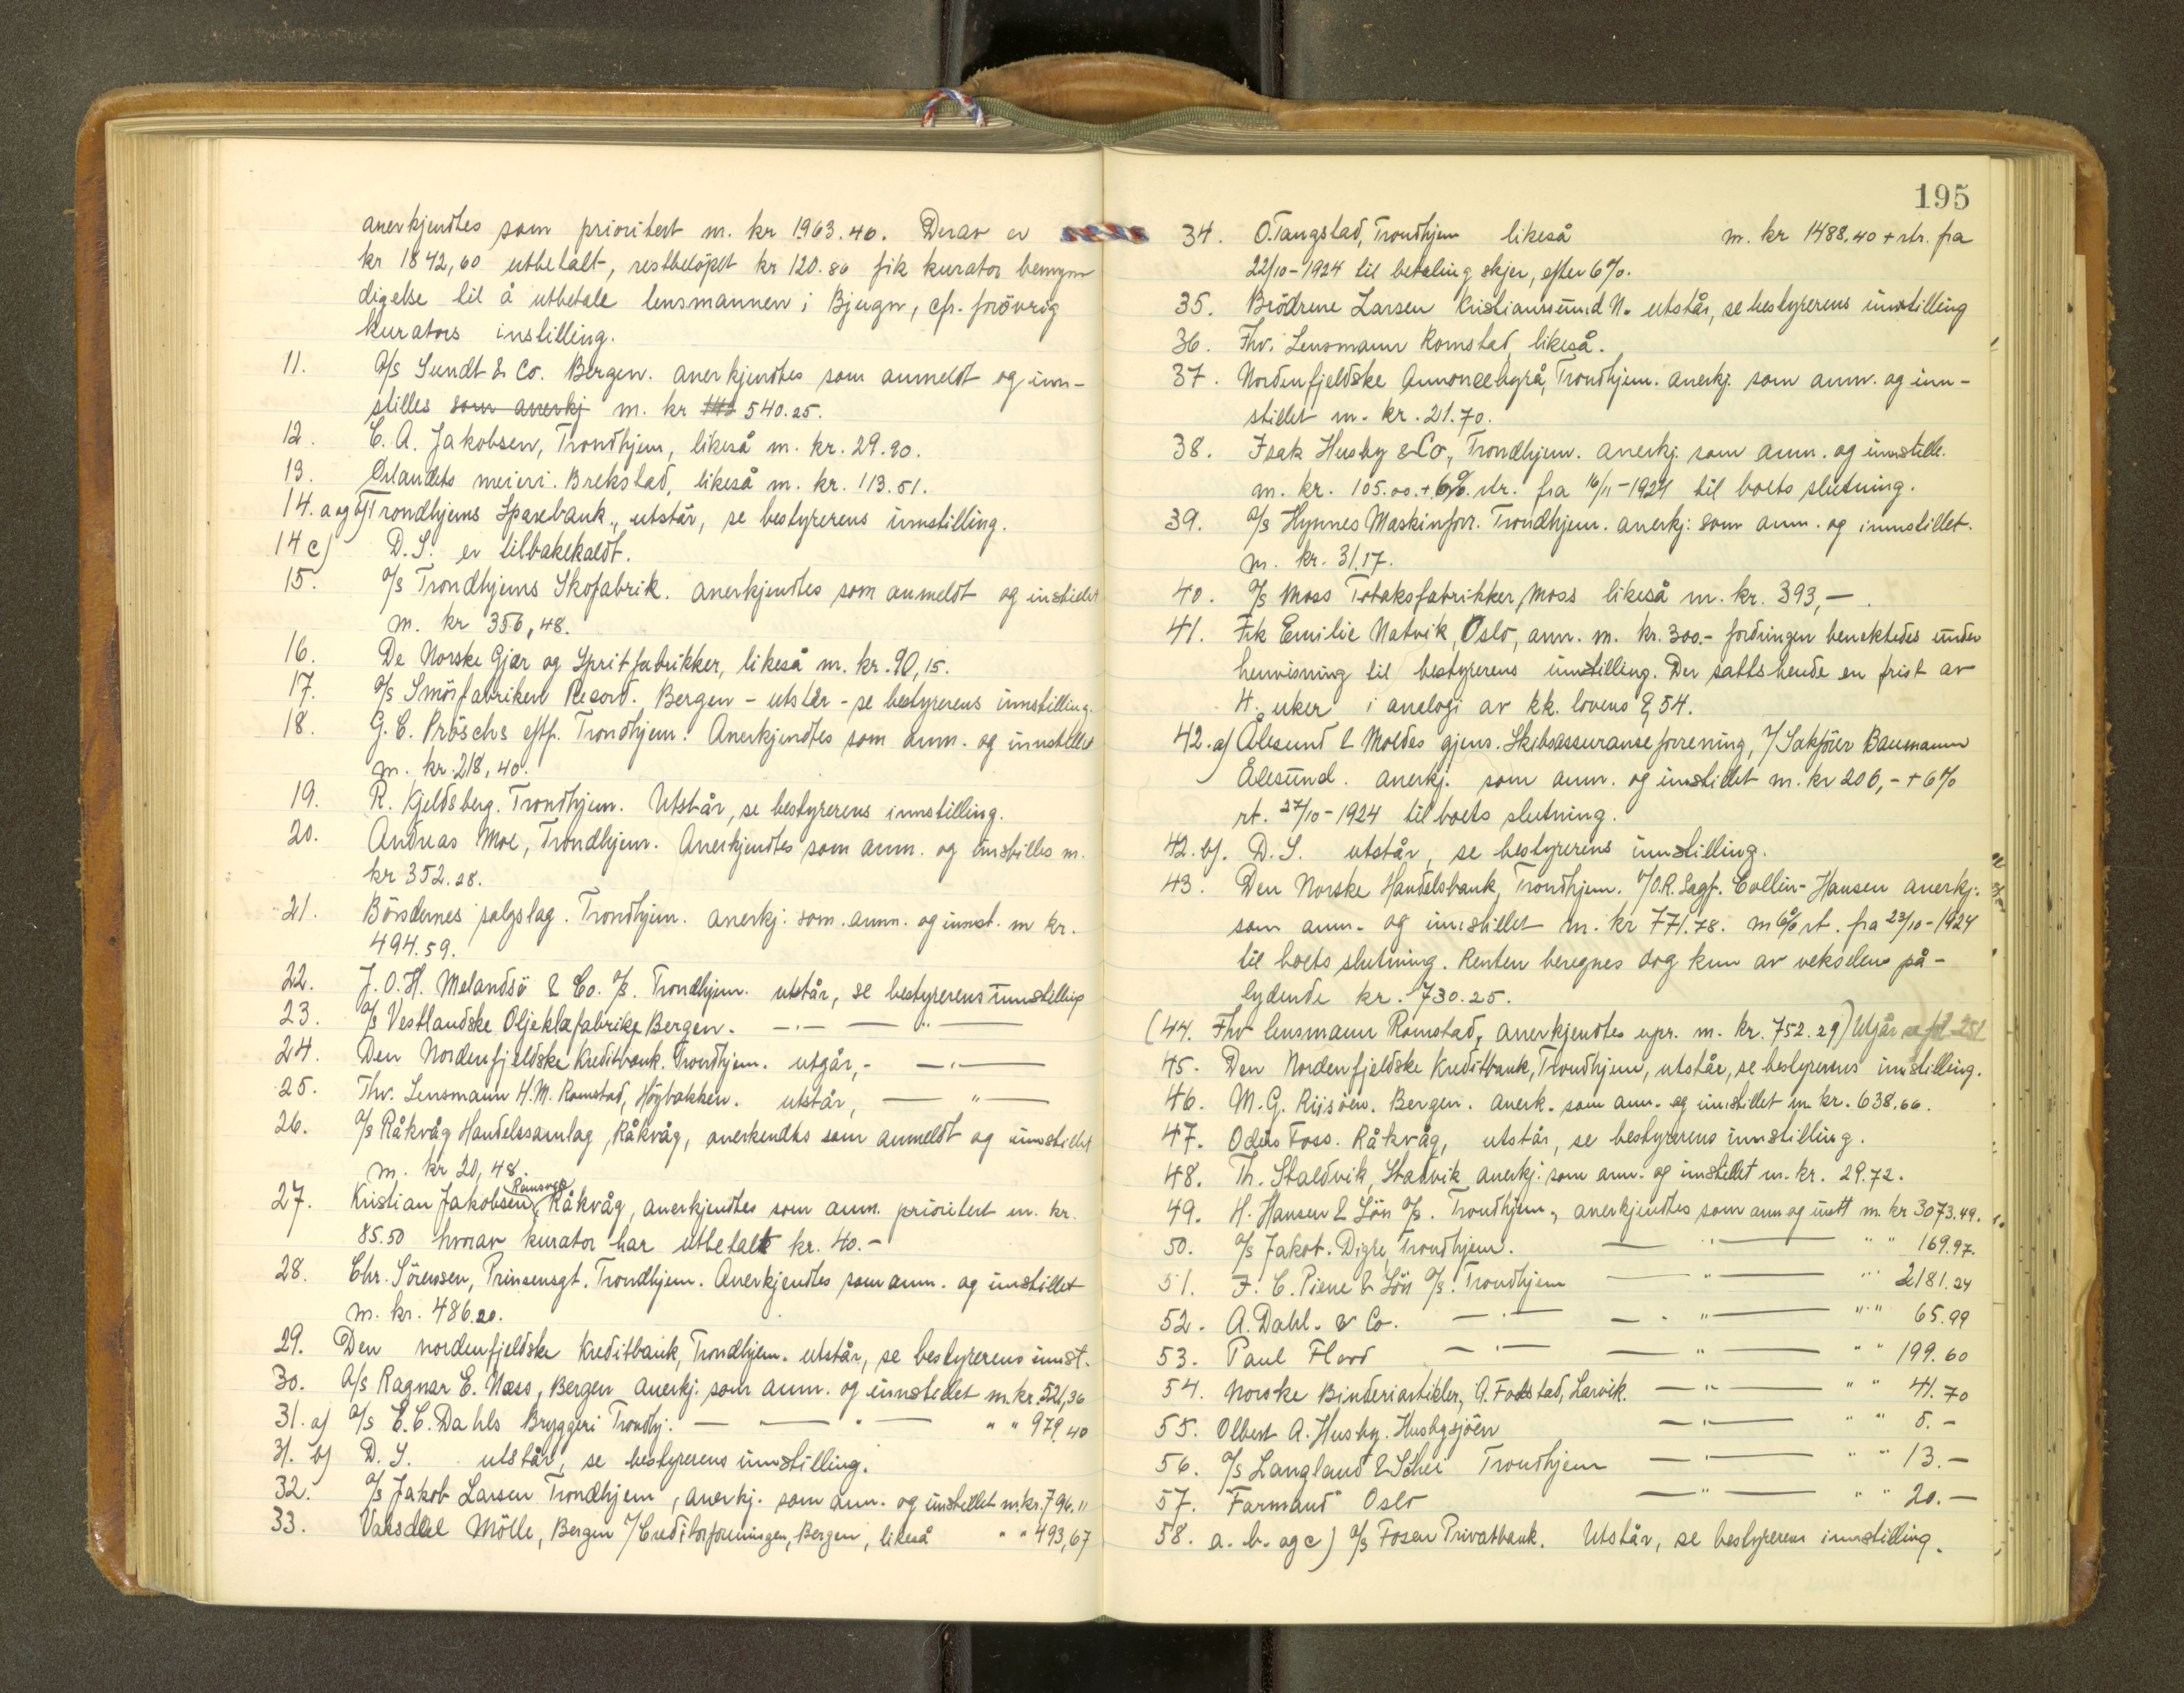 anerkjendtes som prioritert m. kr 1963.40. Derav er
kr 1842,60 utbetalt, restbeløpet kr 120.80 fik kurator bemyn
digelse til å utbetale lensmannen i Bjugn, cfr. forøvrig
kurators instilling.
11. A/S Sundt & Co. Bergen. anerkjendtes som anmeldt og inn-
stilles som anerkj m. kr 540.25.
12. C. A. Jakobsen, Trondhjem, likeså m. kr. 29.20.
13. Ørlandets meieri. Brekstad, likeså m. kr. 113.51.
14. a og b) Trondhjems Sparebank., utstår, se bestyrerens innstilling.
14 c) D.S. er tilbakekaldt.
15. A/S Trondhjems Skofabrik. anerkjendtes som anmeldt og instillet
m. kr 356,48.
16. De Norske Gjær og Spritfabrikker, likeså m. kr. 90,15.
17. A/S Smörfabriken Record. Bergen - utstår - se bestyrerens innstilling.
18. G. C. Pröschs eftf. Trondhjem. Anerkjendtes som anm. og innstillet
m. kr. 218,40.
19. R. Kjeldsberg. Trondhjem. Utstår, se bestyrerens innstilling.
20. Andreas Moe, Trondhjem. Anerkjendtes som anm. og innstilles m.
kr 352.28.
21. Böndernes salgslag. Trondhjem. anerkj: som anm. og innst. m kr.
494.59.
22. J. O. H. Melandsö & Co. A/S. Trondhjem. utstår, se bestyrerens innstilling
23. A/S Vestlandske Oljeklæfabrikp Bergen. — " —
24. Den Nordenfjeldske Kreditbank. Trondhjem. utgår, - — " —
25. Fhv. Lensmann H. M. Romstad, Höybakken. utstår, — " —
26. A/S Råkvåg Handelssamlag, Råkvåg, anerkendtes som anmeldt og innstillet
m. kr 20,48.
Ramsvig
27. Kristian Jakobsen, Råkvåg, anerkjendtes som anm. prioritert m. kr.
85.50 hvorav kurator har utbetalt kr. 40.-
28. Chr. Sörensen, Prinsensgt. Trondhjem. Anerkjendtes som anm. og innstillet
m. kr. 486.20.
29. Den nordenfjeldske Kreditbank, Trondhjem. utstår, se bestyrerens innst.
30. A/S Ragnar E. Næss, Bergen anerkj: som anm. og innstillet m. kr. 521,36
31. a) A/S E. C. Dahls Bryggeri Trondhj: — — " — " " 979.40
31. b) D. S. utstår, se bestyrerens innstilling.
32. A/S Jakob Larsen Trondhjem, anerkj. som anm. og innstillet m. kr. 794.11
33. Vaksdal Mölle, Bergen v/Creditorforeningen, Bergen, likeså " " 493,67
195
34. O. Tangstad, Trondhjem likeså m. kr 1488,40 + rtr. fra
22/10-1924 til betaling skjer, efter 6%.
35. Brödrene Larsen Kristiansund N. utstår, se bestyrerens innstilling
36. Fhv. Lensmann Romstad, likeså.
37. Nordenfjeldske Annoncebyrå, Trondhjem. anerkj. som anm. og inn-
stillet m. kr. 21.70.
38. Isak Husby & Co., Trondhjem. anerkj. som anm. og innstill.
m. kr. 105.00. + 6% rtr. fra 16/11-1924 til boets slutning.
39. A/S Hynnes Maskinforr. Trondhjem. anerkj: som anm. og innstillet.
m. kr. 31.17.
40. A/S Moss Tobaksfabrikker, Moss likeså m. kr. 393,—.
41. Frk Emilie Natvik, Oslo, anm. m. kr. 300.- fordringen benektedes under
henvisning til bestyrerens innstilling. Der sattes hende en frist av
4. uker i analogi av kk. lovens § 54.
42. a) Ålesund & Moldes gjens. Skibsassuranseforrening, v/Sakförer Baumann
Ålesund. anerkj. som anm. og innstillet m. kr 206,- + 6%
rt. 27/10-1924 til boets slutning.
42. b). D. S. utstår, se bestyrerens innstilling.
43. Den Norske Handelsbank, Trondhjem. v/O.R. Sagf. Collin-Hansen anerkj.
som anm. og innstillet m. kr 771.78. m 6% rt. fra 23/10-1924
til boets slutning. Renten beregnes dog kun av vekselens på-
lydende kr. 730.25.
(44. Fhv lensmann Romstad, anerkjendtes upr. m. kr. 752.29) Utgår se fol 251
45. Den Nordenfjeldske Kreditbank, Trondhjem, utstår, se bestyrerens innstilling.
46. M. G. Riisöen. Bergen. anerk. som anm. og innstillet m. kr. 638.66.
47. Odin Foss. Råkvåg, utstår, se bestyrerens innstilling.
48. Th. Staldvik, Stadvik anerkj: som anm. og innstillet m. kr. 29.72.
49. H. Hansen & Sön A/S. Trondhjem, anerkjendtes som anm og instt m. kr 3073.49.
50. A/S Jakob. Digre, Trondhjem. — " — " " 169.97.
51. F. C. Piene & Sön A/S. Trondhjem — " — " " 2181.24
52. A. Dahl. & Co. — " — — " — " " 65.99
53. Paul Floor — " — — " — " " 199.60
54. Norske Binderiartikler, A. Fadstad, Larvik. — " — " " 41.70
55. Olbert A. Husby. Husbysjöen — " — " " 5.-
56. A/S Langland & Schei Trondhjem — " — " " 13.—
57. "Farmand" Oslo — " — " " 20.—
58. a. b. og c) A/S Fosen Privatbank. Utstår, se bestyrerens innstilling.